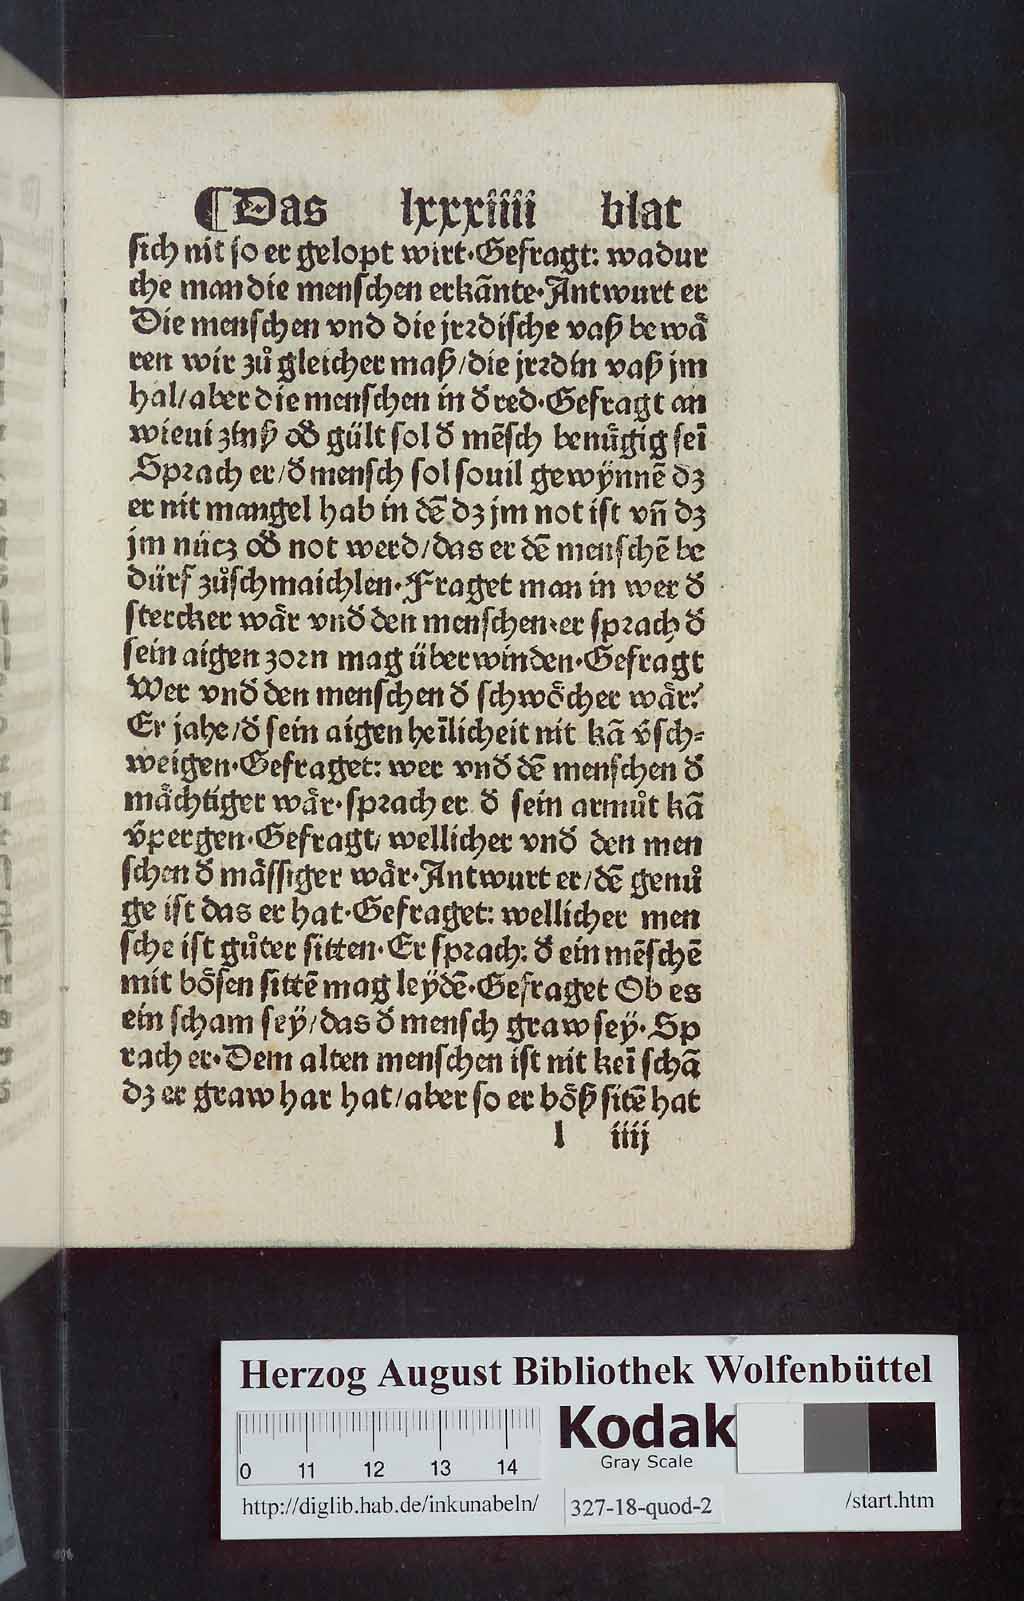 ⸿Das lxxxiiii blat
sich nit so er gelopt wirt·Gefragt: wadur
che man die menschen erkãnte·Antwurt er
Die menschen vnd die jrꝛdische vaß be waͤ
ren wir zuͦ gleicher maß/die jrꝛdin vaß jm
hal/aber die menschen in d̄ red·Gefragt an
wieui zinß od̄ gült sol d̄ mẽsch benuͤgig seī
Spꝛach er/d̄ mensch sol souil gewÿnnẽ dꝫ
er nit mangel hab in dẽ dꝫ jm not ist vn̄ dꝫ
jm nücz od̄ not werd/das er dẽ menschẽ be
dürf zuͦschmaichlen·Fraget man in wer d̄
stercker waͤr vnd̄ den menschen·er spꝛach d̄
sein aigen zoꝛn mag überwinden·Gefragt
Wer vnd̄ den menschen d̄ schwoͤcher waͤr?
Er jahe/d̄ sein aigen heīlicheit nit kã v̄sch⸗
weigen·Gefraget: wer vnd̄ dẽ menschen d̄
maͤchtiger waͤr·spꝛach er d̄ sein armuͦt kã
v̄pergen·Gefragt/wellicher vnd̄ den men
schen d̄ maͤssiger waͤr·Antwurt er/dẽ genuͦ
ge ist das er hat·Gefraget: wellicher men
sche ist guͦter sitten·Er spꝛach: d̄ ein mẽschẽ
mit boͤsen sittẽ mag leÿdẽ·Gefraget Ob es
ein scham seÿ/das d̄ mensch graw seÿ·Sp
rach er·Dem alten menschen ist nit keī schã
dꝫ er graw har hat/aber so er boͤß sitẽ hat
l iiij
Herzog August Bibliothek Wolfenbüttel
0 11 12 13 14
Kodak
Gray Scale
http://diglib.hab.de/inkunabeln/ 327-18-quod-2 /start.htm